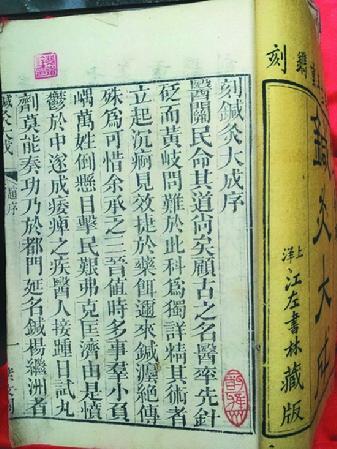 重鐫
刻
鍼灸大成
上洋
江左書林藏版
刻鍼灸大成序
醫關民命其道尚矣顧古之名醫率先針
砭而黃岐問難於此科為獨詳精其術者
立起沉痾見效捷於藥餌邇來鍼灋絕傳
殊為可惜余承之三晉值時多事羣小負
嵎萬姓倒懸目擊民艱弗克匡濟由是憤
鬱於中遂成痿痺之疾醫人接踵日試丸
劑莫能奏功乃於都門延名鍼楊繼洲者
鍼灸大成 序 一